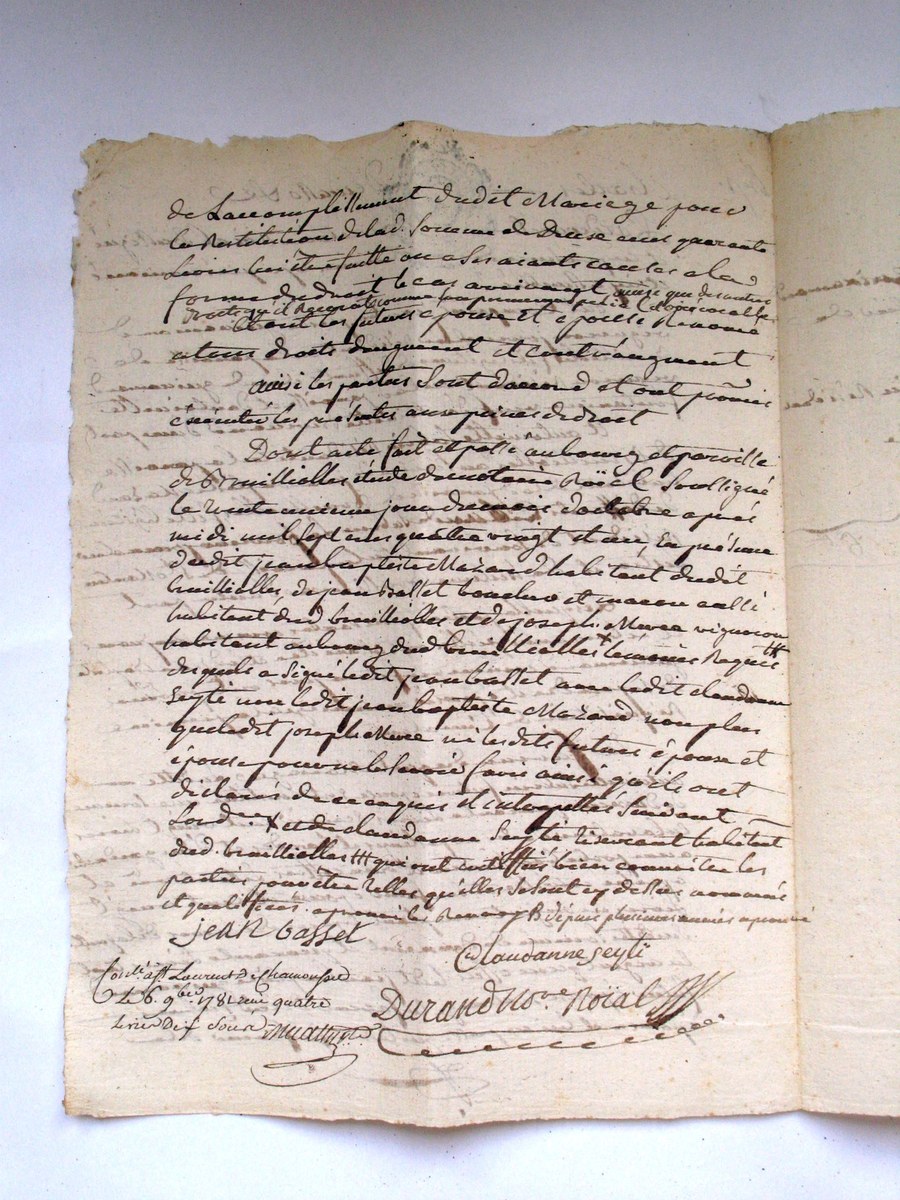 de Laccomplissement dudit Mariage pour
la Restitution de lad. Somme de Deux cens quarante
Livres lui être faitte ou a Ses aiants causes a la
forme du droit le cas arrivant ainsi que des autres
et Renoncé
dont les futurs epouse et epouse
a tous droits dauguement et contraugment
ainsi les parties Sont daccord et ont promis
exécuter les présentes aux peines de droit
Dont acte fait et passé au bourg et parroisse
de Brullioles étude du notaire Roïal Soussigné
le trente unieme jour du mois doctobre après
midi mil Sept cens quatre vingt et un, En présence
dudit jean baptiste Mazard habitant dudit
brullioles, de jean Basset boucher et
habitant dud brullioles et de joseph Mure vigneron
habitant au bourg dud brullioles témoins Requis
desquels a Signé ledit jean basset avec ledit claudanne
Seytè non ledit jean baptiste Mazard non plus
que ledit joseph Mure ni lesdits futurs épouse et
épouse pour ne le Savoir faire ainsi qu'ils ont
déclarés de ce enquis et interpellés Suivant
Lord.ce X et de claudanne Seytè tisserant habitant
dud. brullioles ttt qui ont bien connoitre les
parties pour être telles qu'elles Se Sont cy dessus nommées
et qualifiées. approuvé les Renvoys depuis plusieurs années approuvé
jean basset
Claudanne seytè
Durand No.re Roïal
Con.lé à St Laurent de Chamousset
le 6. 9bre 1781 reçu quatre
Livres dix sous